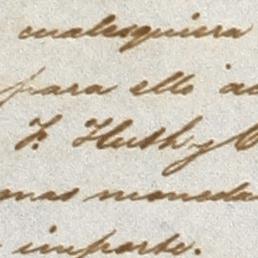 cualesquiera
para ello
F. Huth y
mas moneda
importe.